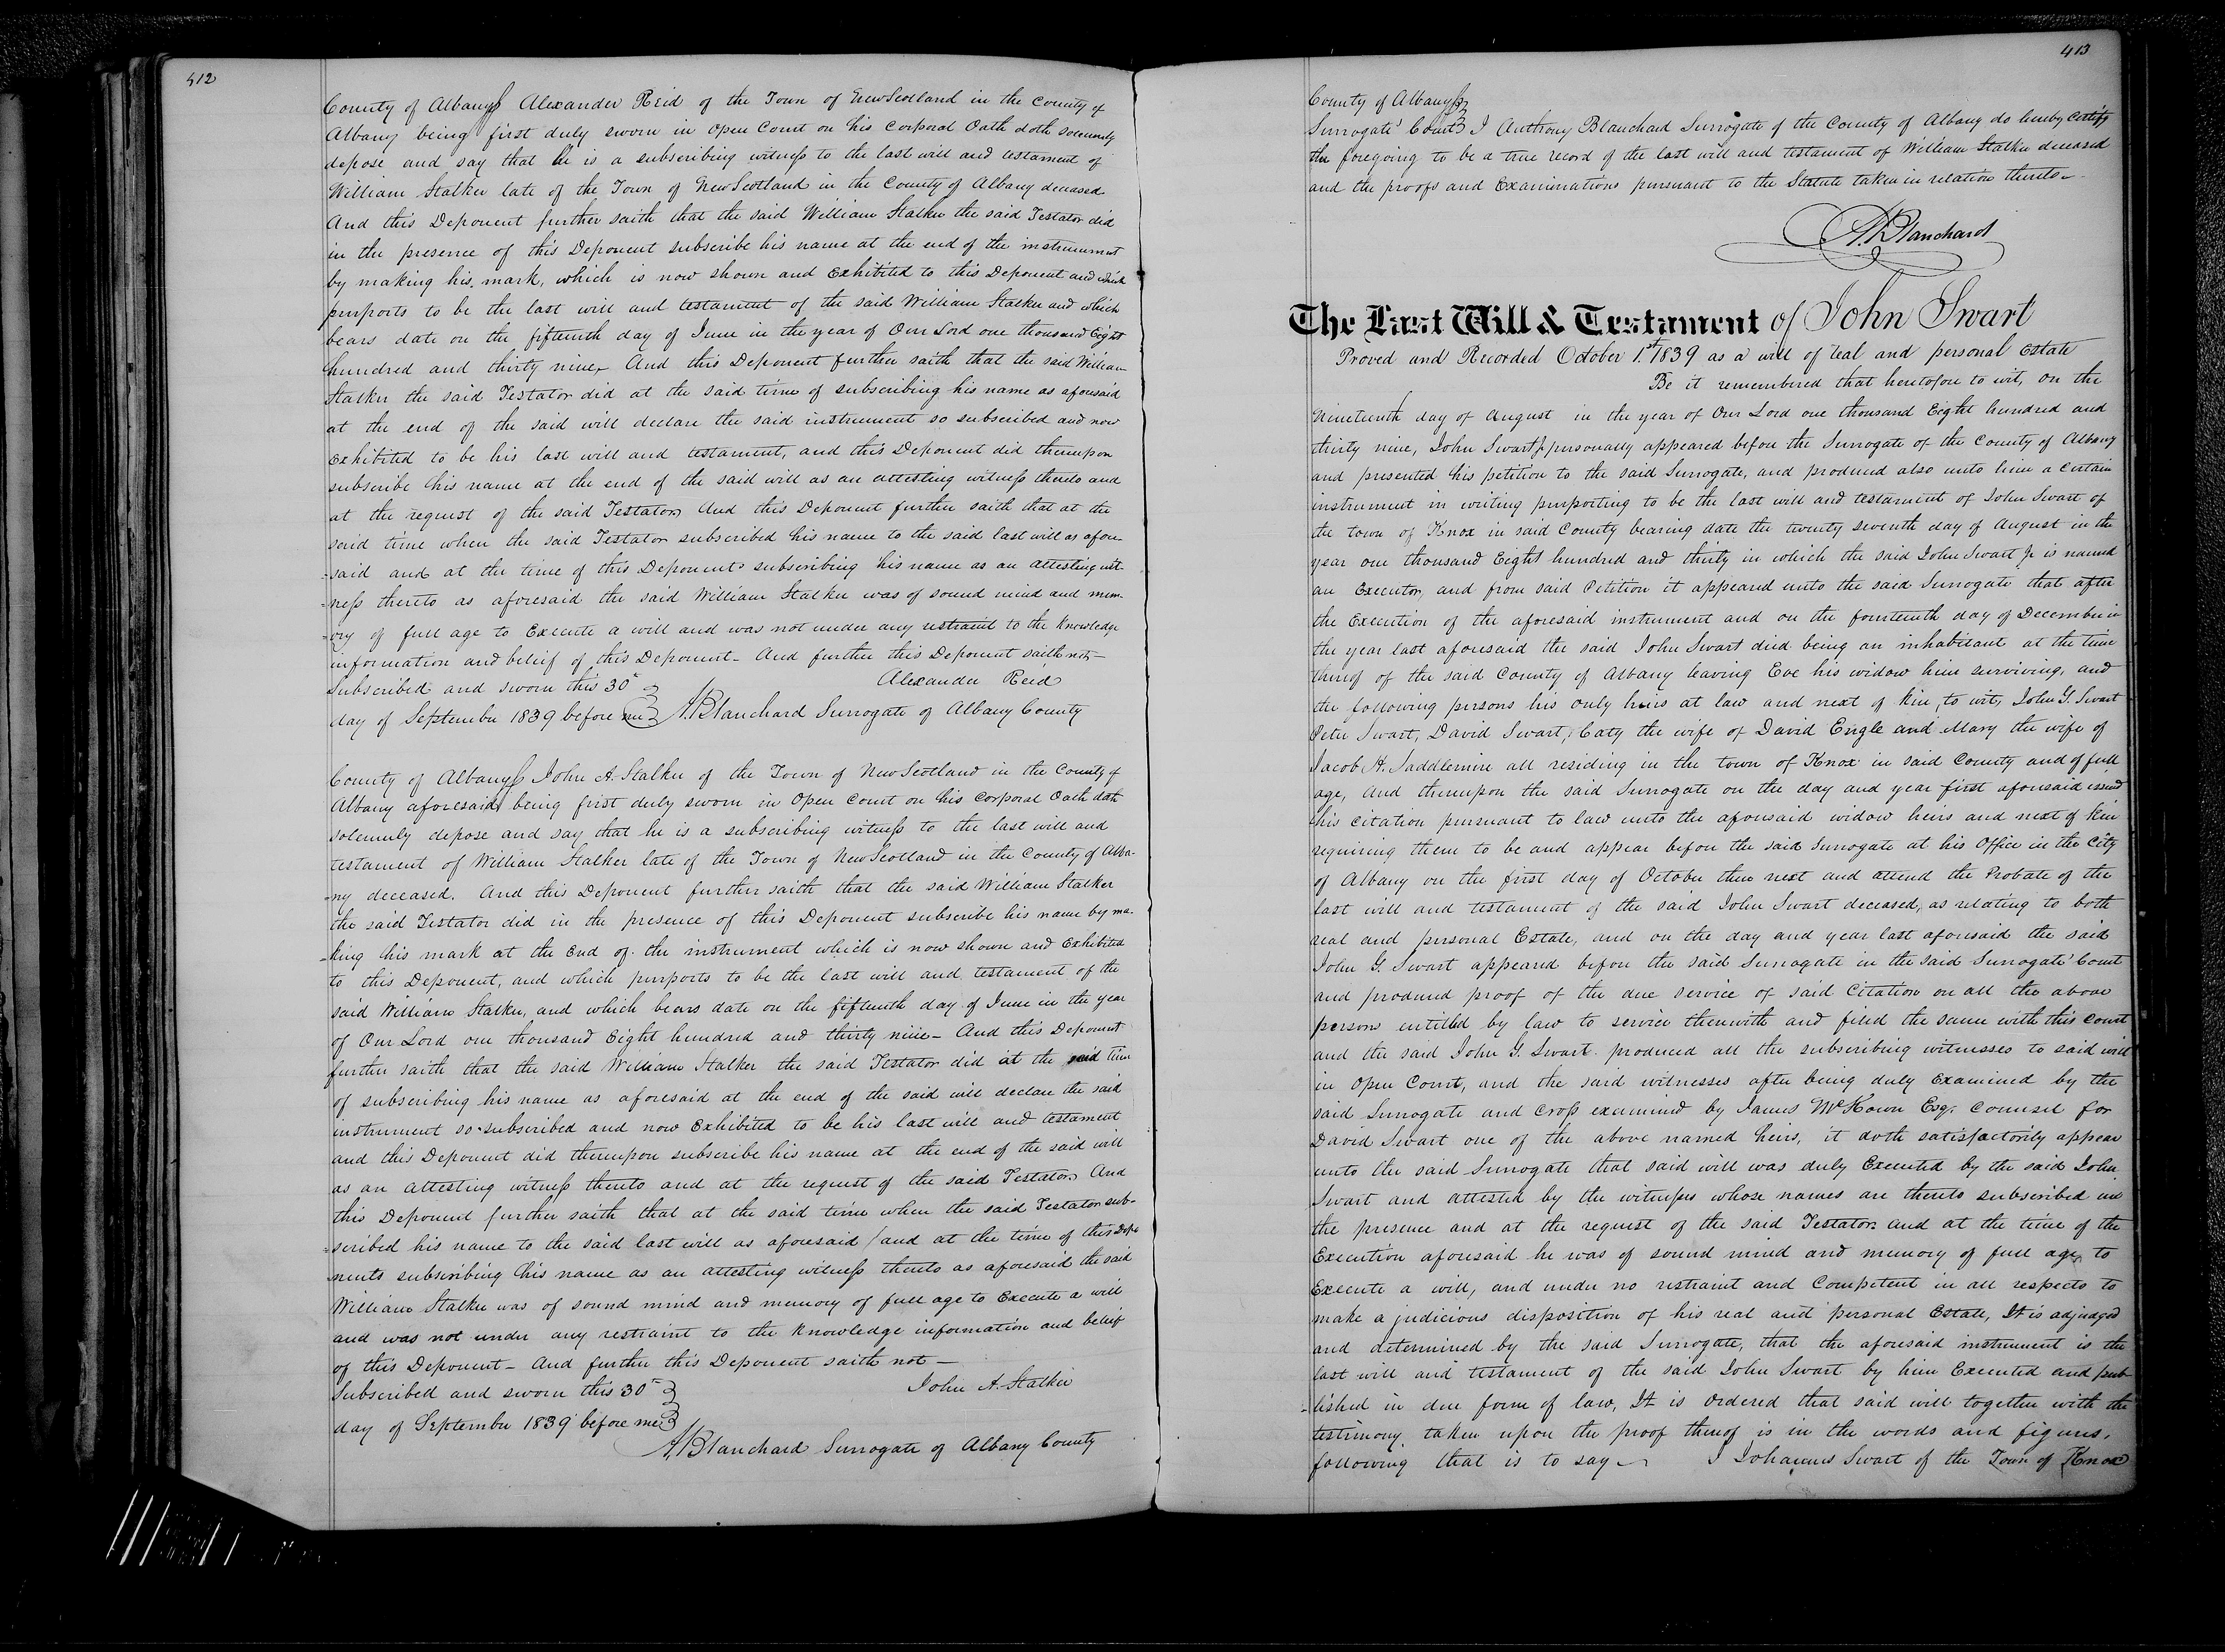 412
County of Albany ss Alexander Reid of the Town of New Scotland in the County of
Albany being first duly sworn in Open Court on his Corporal Oath doth solemnly
depose and say that he is a subscribing witness to the last will and testament of
William Stalker late of the Town of New Scotland in the County of Albany deceased
And this Deponent further saith that the said William Stalker the said Testator did
in the presence of this Deponent subscribe his name at the end of the instrument
by making his mark, which is now shown and Exhibited to this Deponent and which
purports to be the last will and testament of the said William Stalker and which
bears date on the fifteenth day of June in the year of Our Lord one thousand Eight
hundred and thirty nine, And this Deponent further saith that the said William
Stalker the said Testator did at the said time of subscribing his name as aforesaid
at the end of the said will declare the said instrument so subscribed and now
Exhibited to be his last will and testament, and this Deponent did thereupon
subscribe his name at the end of the said will as an attesting witness thereto and
at the request of the said Testator, And this Deponent further saith that at the
said time when the said Testator subscribed his name to the said last will as afore-
-said and at the time of this Deponents subscribing his name as an attesting wit-
-ness thereto as aforesaid the said William Stalker was of sound mind and mem-
-ory of full age to Execute a will and was not under any restraint to the knowledge
information and belief of this Deponent - And further this Deponent saith not -
Subscribed and sworn this 30th Alexander Reid
day of September 1839 before me A. Blanchard Surrogate of Albany County
County of Albany ss John A. Stalker of the Town of New Scotland in the County of
Albany aforesaid being first duly sworn in Open Court on his Corporal Oath doth
solemnly depose and say that he is a subscribing witness to the last will and
testament of William Stalker late of the Town of New Scotland in the County of Alba-
-ny deceased. And this Deponent further saith that the said William Stalker
the said Testator did in the presence of this Deponent subscribe his name by ma-
-king his mark at the End of the instrument which is now shown and Exhibited
to this Deponent, and which purports to be the last will and testament of the
said William Stalker, and which bears date on the fifteenth day of June in the year
of Our Lord one thousand Eight hundred and thirty nine - And this Deponent
further saith that the said William Stalker the said Testator did at the said time
of subscribing his name as aforesaid at the end of the said will declare the said
instrument so subscribed and now Exhibited to be his last will and testament
and this Deponent did thereupon subscribe his name at the end of the said will
as an attesting witness thereto and at the request of the said Testator, And
this Deponent further saith that at the said time when the said Testator sub-
-scribed his name to the said last will as aforesaid / and at the time of this Depo
nents subscribing his name as an attesting witness thereto as aforesaid the said
William Stalker was of sound mind and memory of full age to Execute a will
and was not under any restraint to the knowledge information and belief
of this Deponent - And further this Deponent saith not -
Subscribed and sworn this 30th John A. Stalker
day of September 1839 before me
A. Blanchard Surrogate of Albany County
413
County of Albany ss
Surrogate's Court I Anthony Blanchard Surrogate of the County of Albany do hereby Certify
the foregoing to be a true record of the last will and testament of William Stalker deceased
and the proofs and Examinations pursuant to the Statute taken in relation thereto -
A. Blanchard
The Last Will & Testament of John Swart
Proved and Recorded October 1st 1839 as a will of real and personal Estate
Be it remembered that heretofore to wit, on the
Nineteenth day of August in the year of Our Lord one thousand Eight hundred and
thirty nine, John Swart Jr personally appeared before the Surrogate of the County of Albany
and presented his petition to the said Surrogate, and produced also unto him a Certain
instrument in writing purporting to be the last will and testament of John Swart of
the town of Knox in said County bearing date the twenty seventh day of August in the
year one thousand Eight hundred and thirty in which the said John Swart Jr is named
an Executor, and from said Petition it appeared unto the said Surrogate that after
the Execution of the aforesaid instrument and on the fourteenth day of December in
the year last aforesaid the said John Swart died being an inhabitant at the time
thereof of the said County of Albany leaving Eve his widow him surviving, and
the following persons his only heirs at law and next of kin, to wit, John G. Swart
Peter Swart, David Swart, Caty the wife of David Engle and Mary the wife of
Jacob H. Saddlemire all residing in the town of Knox in said County and of full
age, And thereupon the said Surrogate on the day and year first aforesaid issued
his Citation pursuant to law unto the aforesaid widow heirs and next of kin
requiring them to be and appear before the said Surrogate at his Office in the City
of Albany on the first day of October then next and attend the Probate of the
last will and testament of the said John Swart deceased, as relating to both
real and personal Estate, and on the day and year last aforesaid the said
John G. Swart appeared before the said Surrogate in the said Surrogate's Court
and produced proof of the due service of said Citation on all the above
persons entitled by law to service therewith and filed the same with this Court
and the said John G. Swart produced all the subscribing witnesses to said will
in Open Court, and the said witnesses after being duly Examined by the
said Surrogate and Cross examined by James McKown Esqr. Counsel for
David Swart one of the above named heirs, it doth satisfactorily appear
unto the said Surrogate that said will was duly Executed by the said John
Swart and attested by the witnesses whose names are thereto subscribed in
the presence and at the request of the said Testator and at the time of the
Execution aforesaid he was of sound mind and memory of full age, to
Execute a will, and under no restraint and Competent in all respects to
make a judicious disposition of his real and personal Estate, It is adjudged
and determined by the said Surrogate, that the aforesaid instrument is the
last will and testament of the said John Swart by him Executed and pub-
-lished in due form of law, It is Ordered that said will together with the
testimony taken upon the proof thereof is in the words and figures,
following that is to say I Johannes Swart of the Town of Knox